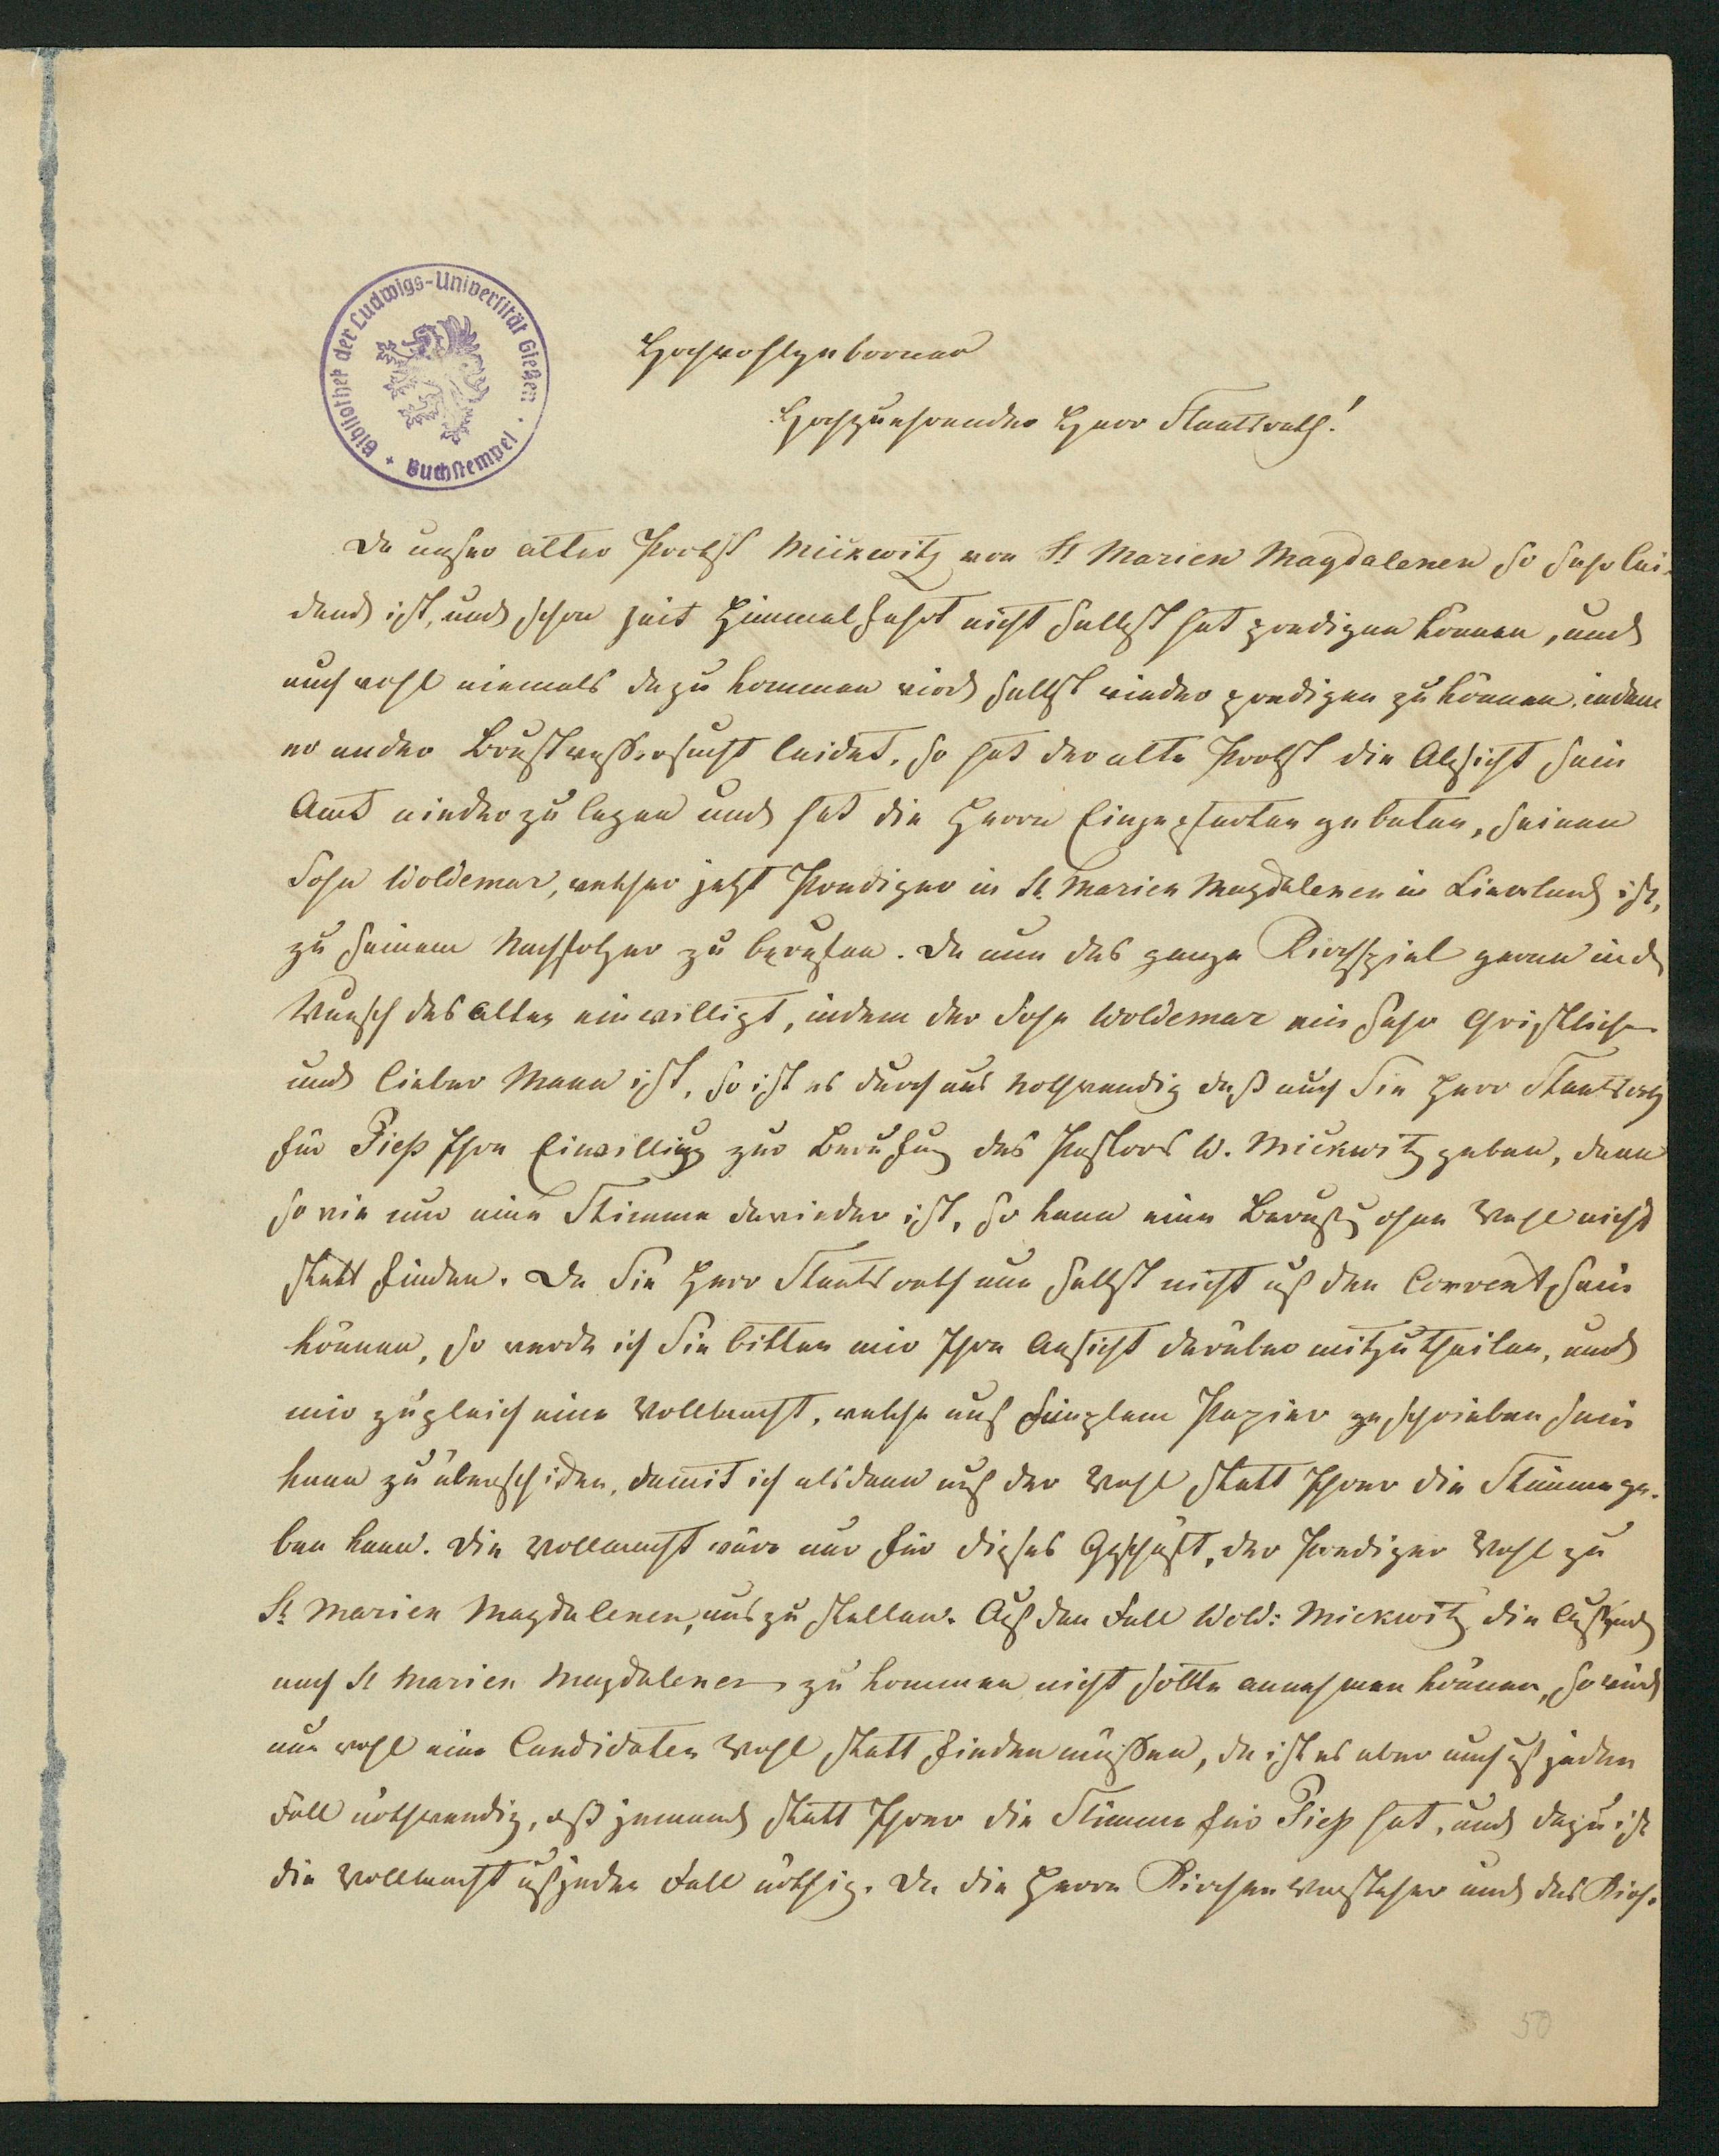 Bibliothek der Ludwigs-Universität Gießen · Buchstempel
Hochwohlgeborner
Hochzuehrender Herr Staatsrath!
Da unser alter Probst Mickwitz von St Marien Magdalenen so sehr lei-
dend ist, und schon seit Himmelfahrt nicht selbst hat predigen können, und
auch wohl niemals dazu kommen wird selbst wieder predigen zu können, indem
er an der Brustwassersucht leidet, so hat der alte Probst die Absicht sein
Amt niederzulegen und hat die Herrn Eingepfarten gebeten, seinen
Sohn Woldemar, welcher jetzt Prediger in St. Marien Magdalenen in Livland ist,
zu seinem Nachfolger zu berufen. Da nun das ganze Kirchspiel gerne in d
Wunsch des Alten einwilligt, indem der Sohn Woldemar ein sehr Christlicher
und lieber Mann ist, so ist es durchaus nothwendig daß auch Sie Herr Staatsrath
für Pieß Ihre Einwilligg zur Berufung des Pastors W. Mickwitz geben, denn
so wie nur eine Stimme dawieder ist, so kann eine Berufg ohne Wahl nicht
statt finden. Da Sie Herr Staatsrath nun selbst nicht auf den Convent sein
können, so werde ich Sie bitten mir Ihre Ansicht darüber mitzutheilen, und
mir zugleich eine Vollmacht, welche auf simplem Papier geschrieben sein
kann zu überschicken, damit ich alsdann auf der Wahl statt Ihrer die Stimme ge-
ben kann. Die Vollmacht wäre nur für dieses Geschäft, der Prediger Wahl zu
St Marien Magdalenen, aus zu stellen. Auf den Fall Wold: Mickwitz die
nach St Marien Magdalenen zu kommen nicht sollte annehmen können, so wird
nun wohl eine Candidaten Wahl statt finden müssen, da ist es aber auch auf jeden
Fall nothwendig, daß jemand statt Ihrer die Stimme für Pieß hat, und dazu ist
die Vollmacht auf jeden Fall nöthig. Da die Herrn Kirchen Vorsteher und das Kirch-
50